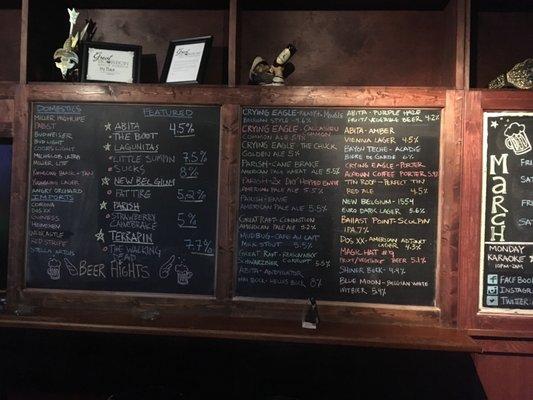 DOMESTICS
MILLER HIGHLIFE
PABST
BUDWEISER
BUD LIGHT
COORS LIGHT
MICHELOB ULTRA
MILLER LITE
YUENGLING LAGER
ANGRY ORCHARD
IMPORTS
CORONA
DOS XX
GUINNESS
HEINEKEN
NEWCASTLE
RED STRIPE
STELLA ARTOIS
FEATURED
ABITA
THE BOOT 4.5%
LAGUNITAS
LITTLE SUMPIN 7.5%
SUCKS 8%
NEW BELGIUM
FAT TIRE 5.2%
PARISH
STRAWBERRY 5%
CANEBRAKE
TERRAPIN
THE WALKING 7.7%
DEAD
BEER FLIGHTS
CRYING EAGLE
CRYING EAGLE - CALCASIEU
COMMON ALE
CRYING EAGLE - THE CHUCK
GOLDEN ALE 5%
PARISH - CANE BRAKE
AMERICAN PALE WHEAT ALE 5.5%
PARISH - DRY HOPPED ENVIE
AMERICAN PALE ALE 5.5%
PARISH - ENVIE
AMERICAN PALE ALE 5.5%
GREAT RAFT - COMMOTION
AMERICAN PALE ALE 5.2%
MUDBUG - CAFÉ AU LAIT
MILK STOUT 5.5%
GREAT RAFT - REASONABLY
CORRUPT
SCHWARZBIER 5.5%
ABITA - ANDYGATOR
MAI BOCK - HELLES BOCK 8%
ABITA - PURPLE HAZE
FRUIT/VEGETABLE BEER 4.2%
ABITA - AMBER
VIENNA LAGER 4.5%
BAYOU TECHE - ACADIE
BIERE DE GARDE 6%
CRYING EAGLE - PORTER
TIN ROOF - PERFECT TIN
RED ALE 4.5%
NEW BELGIUM - 1554
EURO DARK LAGER 5.6%
BALLAST POINT - SCULPIN
IPA 7%
DOS XX - AMERICAN ADJUNCT
LAGER 4.5%
MAGIC HAT #9
FRUIT/VEGETABLE BEER 5.1%
SHINER BOCK - 4.4%
BLUE MOON - BELGIAN WHITE
WITBIER 5.4%
MARCH
FRI
SATU
FRI
SAT
MONDAY
KARAOKE
10PM-2AM
FACEBOOK
INSTAGR
TWITTER